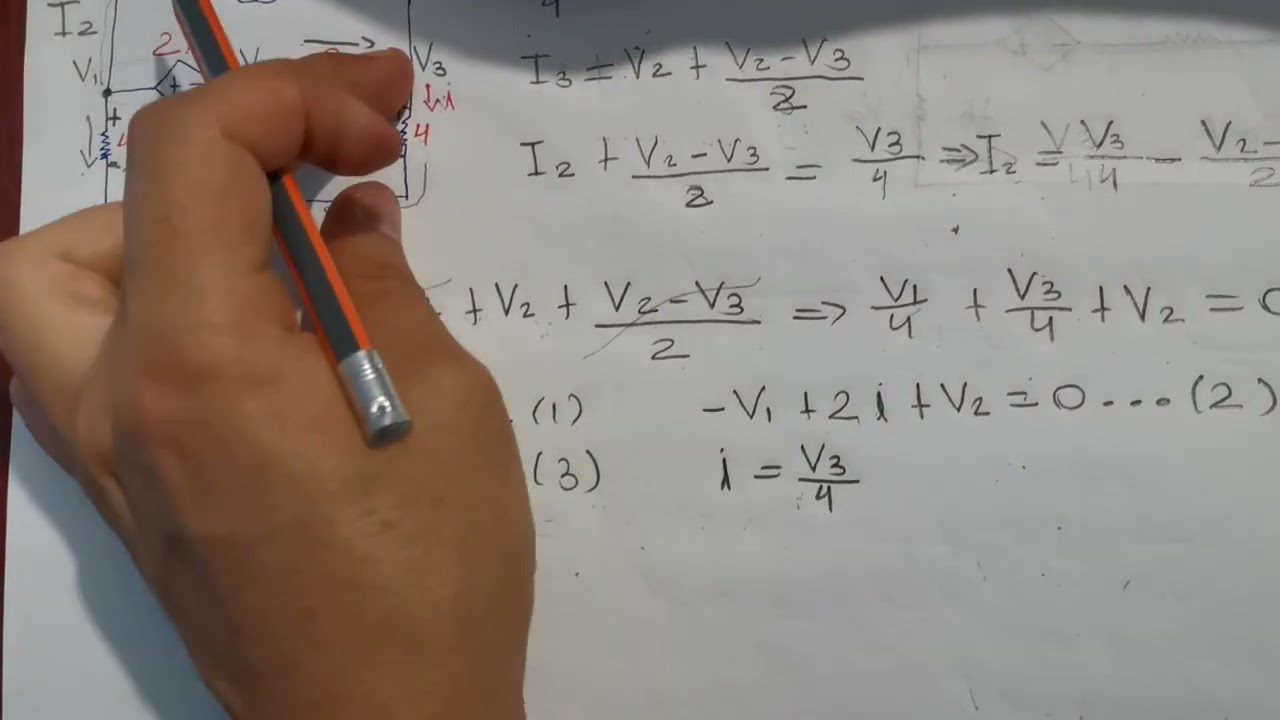 I2
V1
2
V
V3
i
4
+
-
I3 = V2 + (V2 - V3)/2
I2 + (V2 - V3)/2 = V3/4 ⇒ I2 = V3/4 - V2-
+ V2 + (V2 - V3)/2 ⇒ V1/4 + V3/4 + V2 = 0
(1) -V1 + 2i + V2 = 0 ... (2)
(3) i = V3/4